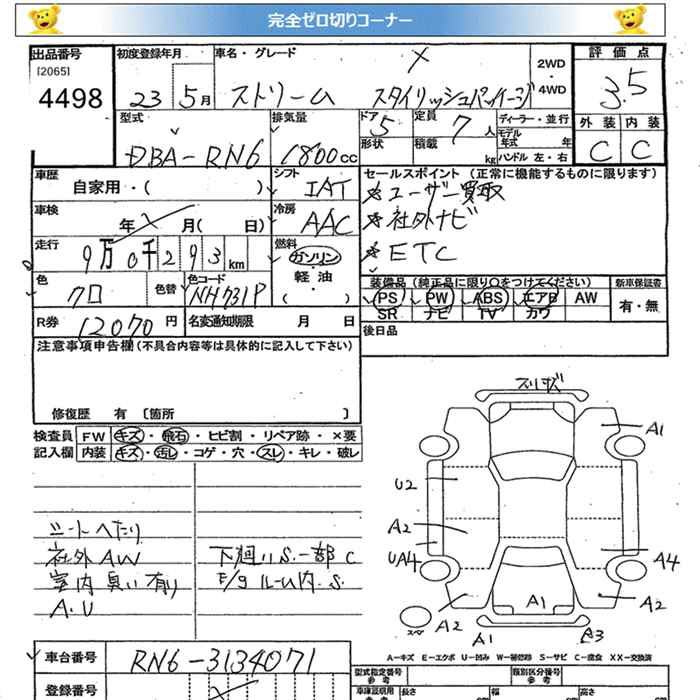 完全ゼロ切りコーナー
出品番号 初度登録年月 車名・グレード 2WD・4WD 評価点
[2065]
4498 23 5月 ストリーム スタイリッシュパッケージ 3.5
型式 排気量 ドア 5 定員 7人 ディーラー・並行 外装 内装
DBA-RN6 1800cc 形状 積載 kg モデル年式 年 C C
ハンドル 左・右
車歴 自家用・( ) シフト IAT セールスポイント (正常に機能するものに限ります)
車検 年 月( 日) 冷房 AAC ユーザー買取
社外ナビ
走行 9万0千293km 燃料 ガソリン・軽油・ ETC
色 クロ 色替 色コード NH731P 装備品 (純正品に限り○をつけてください) 新車保証書
PS PW ABS エアB AW 有・無
SR ナビ TV カワ
R券 12070円 名変通知期限 月 日 後日品
注意事項申告欄(不具合内容等は具体的に記入して下さい)
修復歴 有 〔箇所 〕
検査員 FW キズ・飛石・ヒビ割・リペア跡・×要
記入欄 内装 キズ・汚レ・コゲ・穴・スレ・キレ・破レ
スリキズ
A1
U2
A2
UA4 A4
A1
A2 A2
A1 A3
スペア
シートヘたり
社外AW 下廻りS.一部C
室内臭い有り E/gルーム内.S.
A.U
A-キズ E-エクボ U-凹み W-補修跡 S-サビ C-腐食 XX-交換済
車台番号 RN6-3134071
型式指定番号 参考 類別区分番号 参考
登録番号 車庫証明用 参考 長さ cm 幅 cm 高さ cm